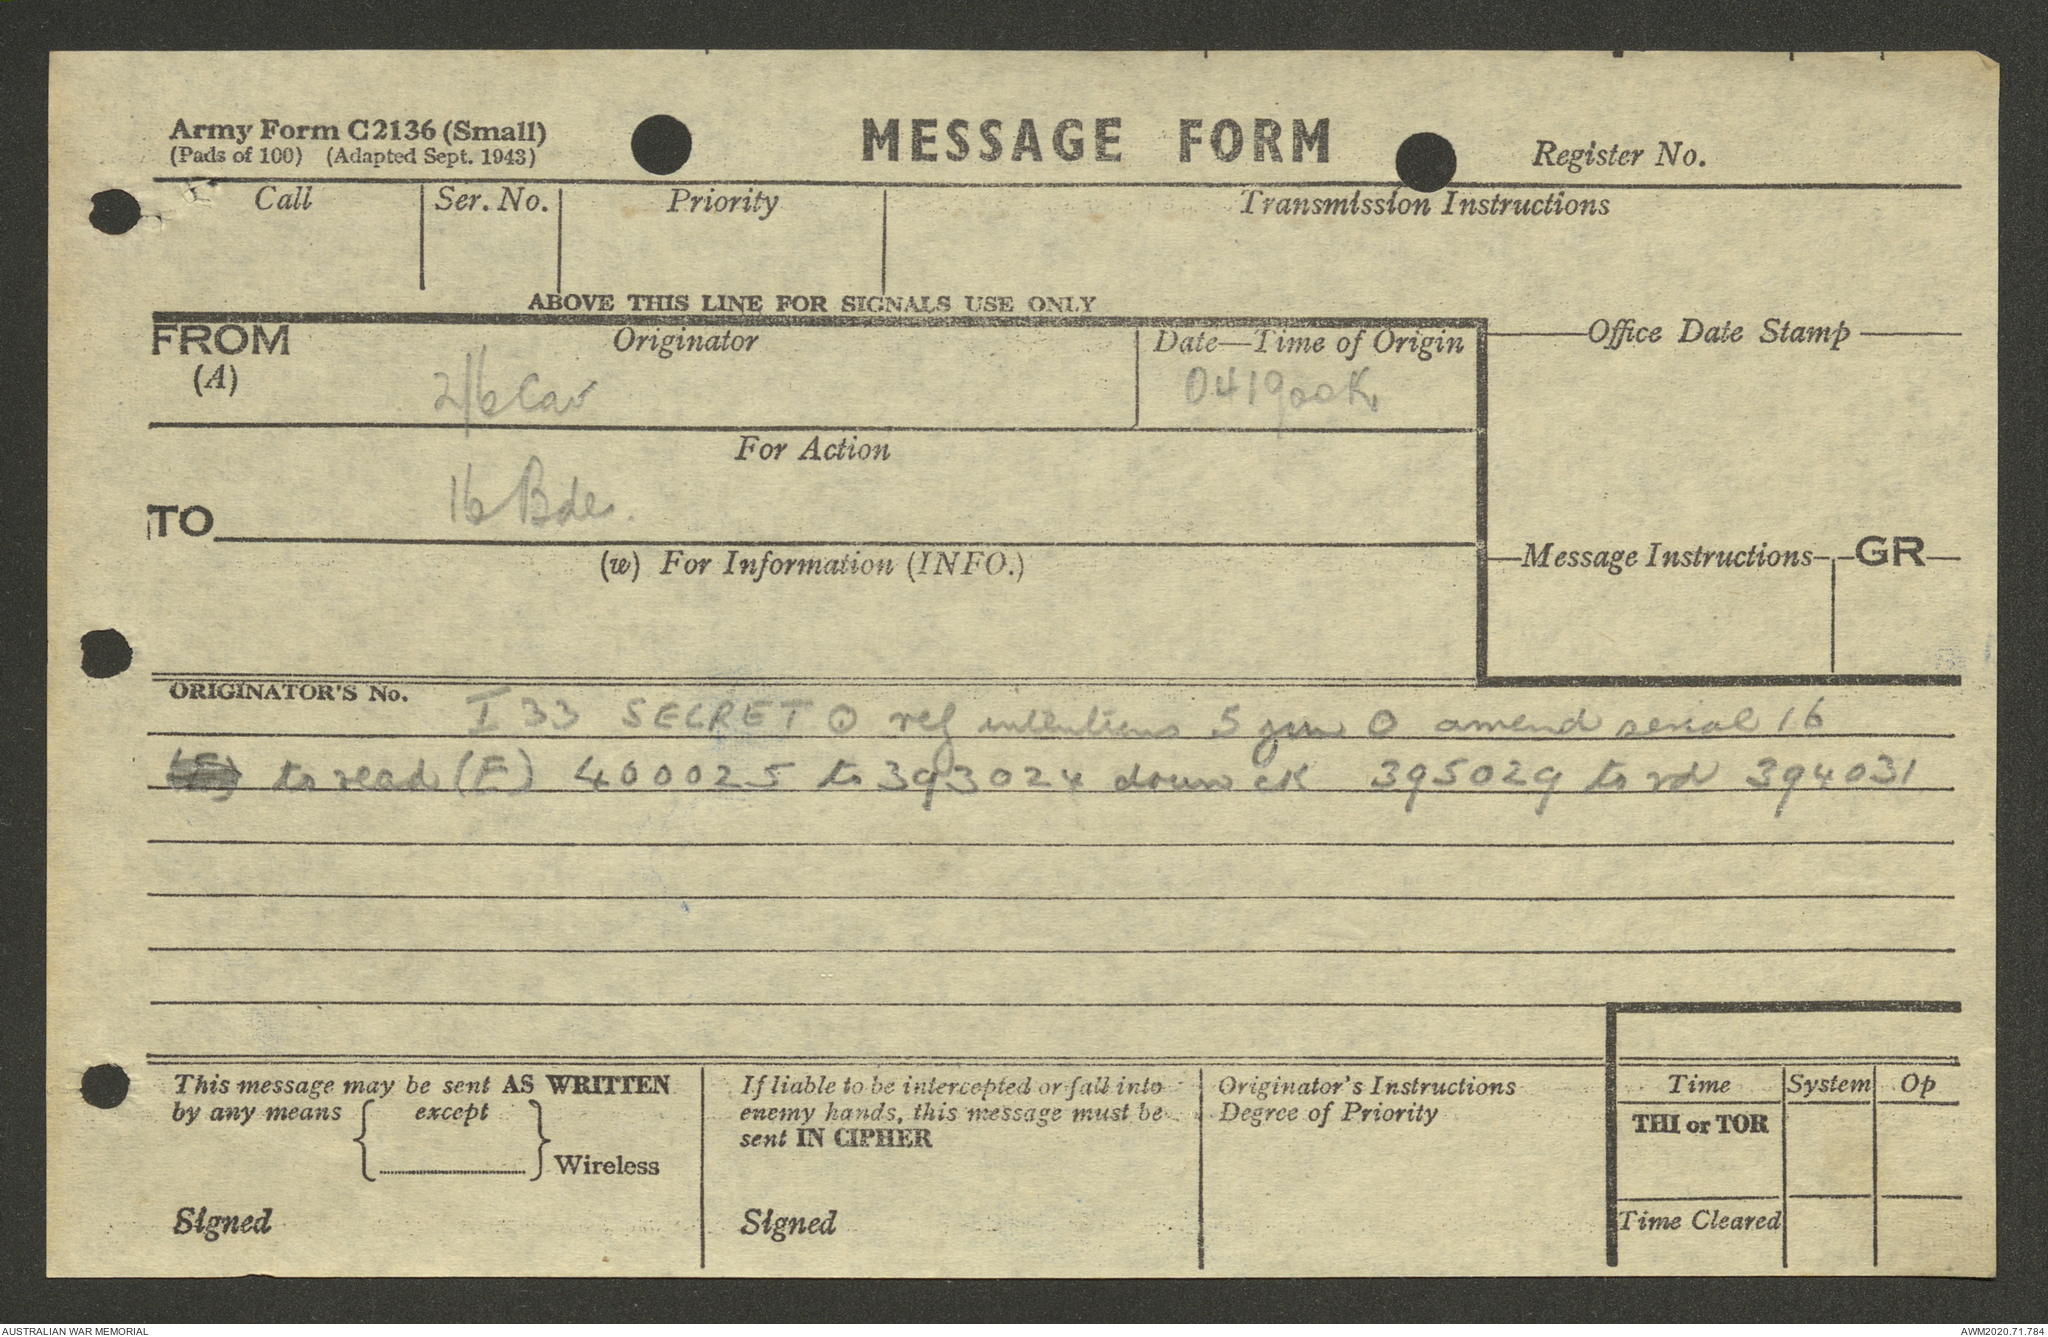 Army Form C2136 (Small)
(Pads of 100) (Adapted Sept. 1943)
MESSAGE FORM
Register No.
Call
Ser. No.
Priority
Transmission Instructions
ABOVE THIS LINE FOR SIGNALS USE ONLY
FROM
(A)
Originator
2/6 Cav
Date—Time of Origin
041900K
Office Date Stamp
For Action
TO
16 Bde.
(w) For Information (INFO.)
Message Instructions
GR
ORIGINATOR'S No.
I 33 SECRET O ref intentions 5 jun O amend serial 16
to read (E) 400025 to 393024 down ck 395029 to rd 394031
This message may be sent AS WRITTEN
by any means { except }
Wireless
Signed
If liable to be intercepted or fall into
enemy hands, this message must be
sent IN CIPHER
Signed
Originator's Instructions
Degree of Priority
Time
System
Op
THI or TOR
Time Cleared
AUSTRALIAN WAR MEMORIAL
AWM2020.71.784